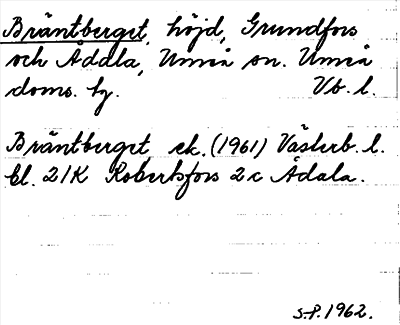 Bräntberget, höjd, Grundfors
och Åddla, Umeå sn. Umeå
doms. hg. Vb. l.
Bräntberget ek. (1961) Västerb. l.
bl. 21K Robertsfors 2c Ådala.
S.P. 1962.